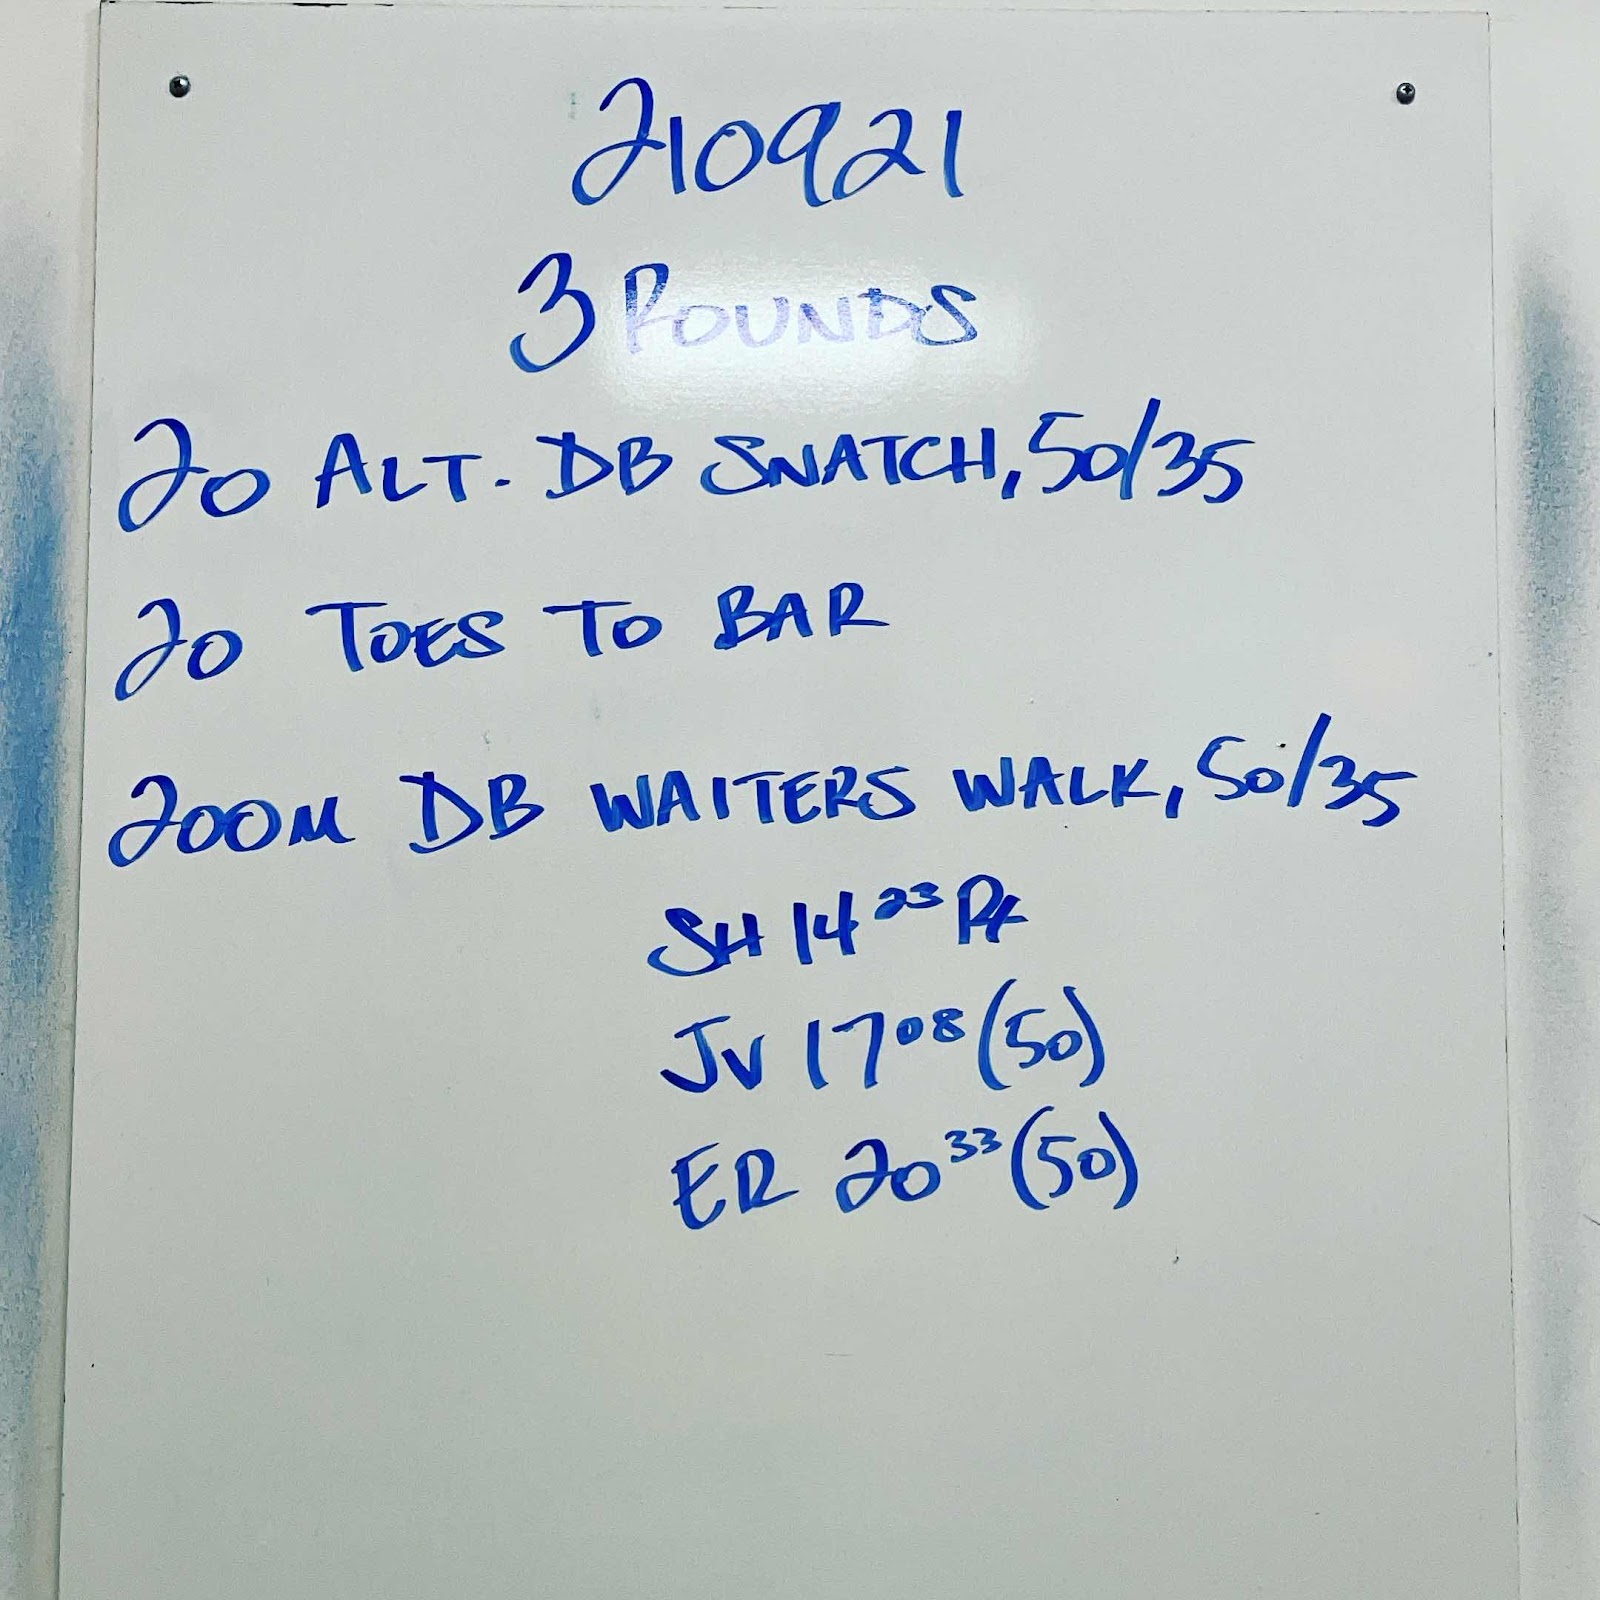 210921
3 ROUNDS
20 ALT. DB SNATCH, 50/35
20 TOES TO BAR
200M DB WAITERS WALK, 50/35
SH 14 23 Rx
JV 17 08 (50)
ER 20 33 (50)